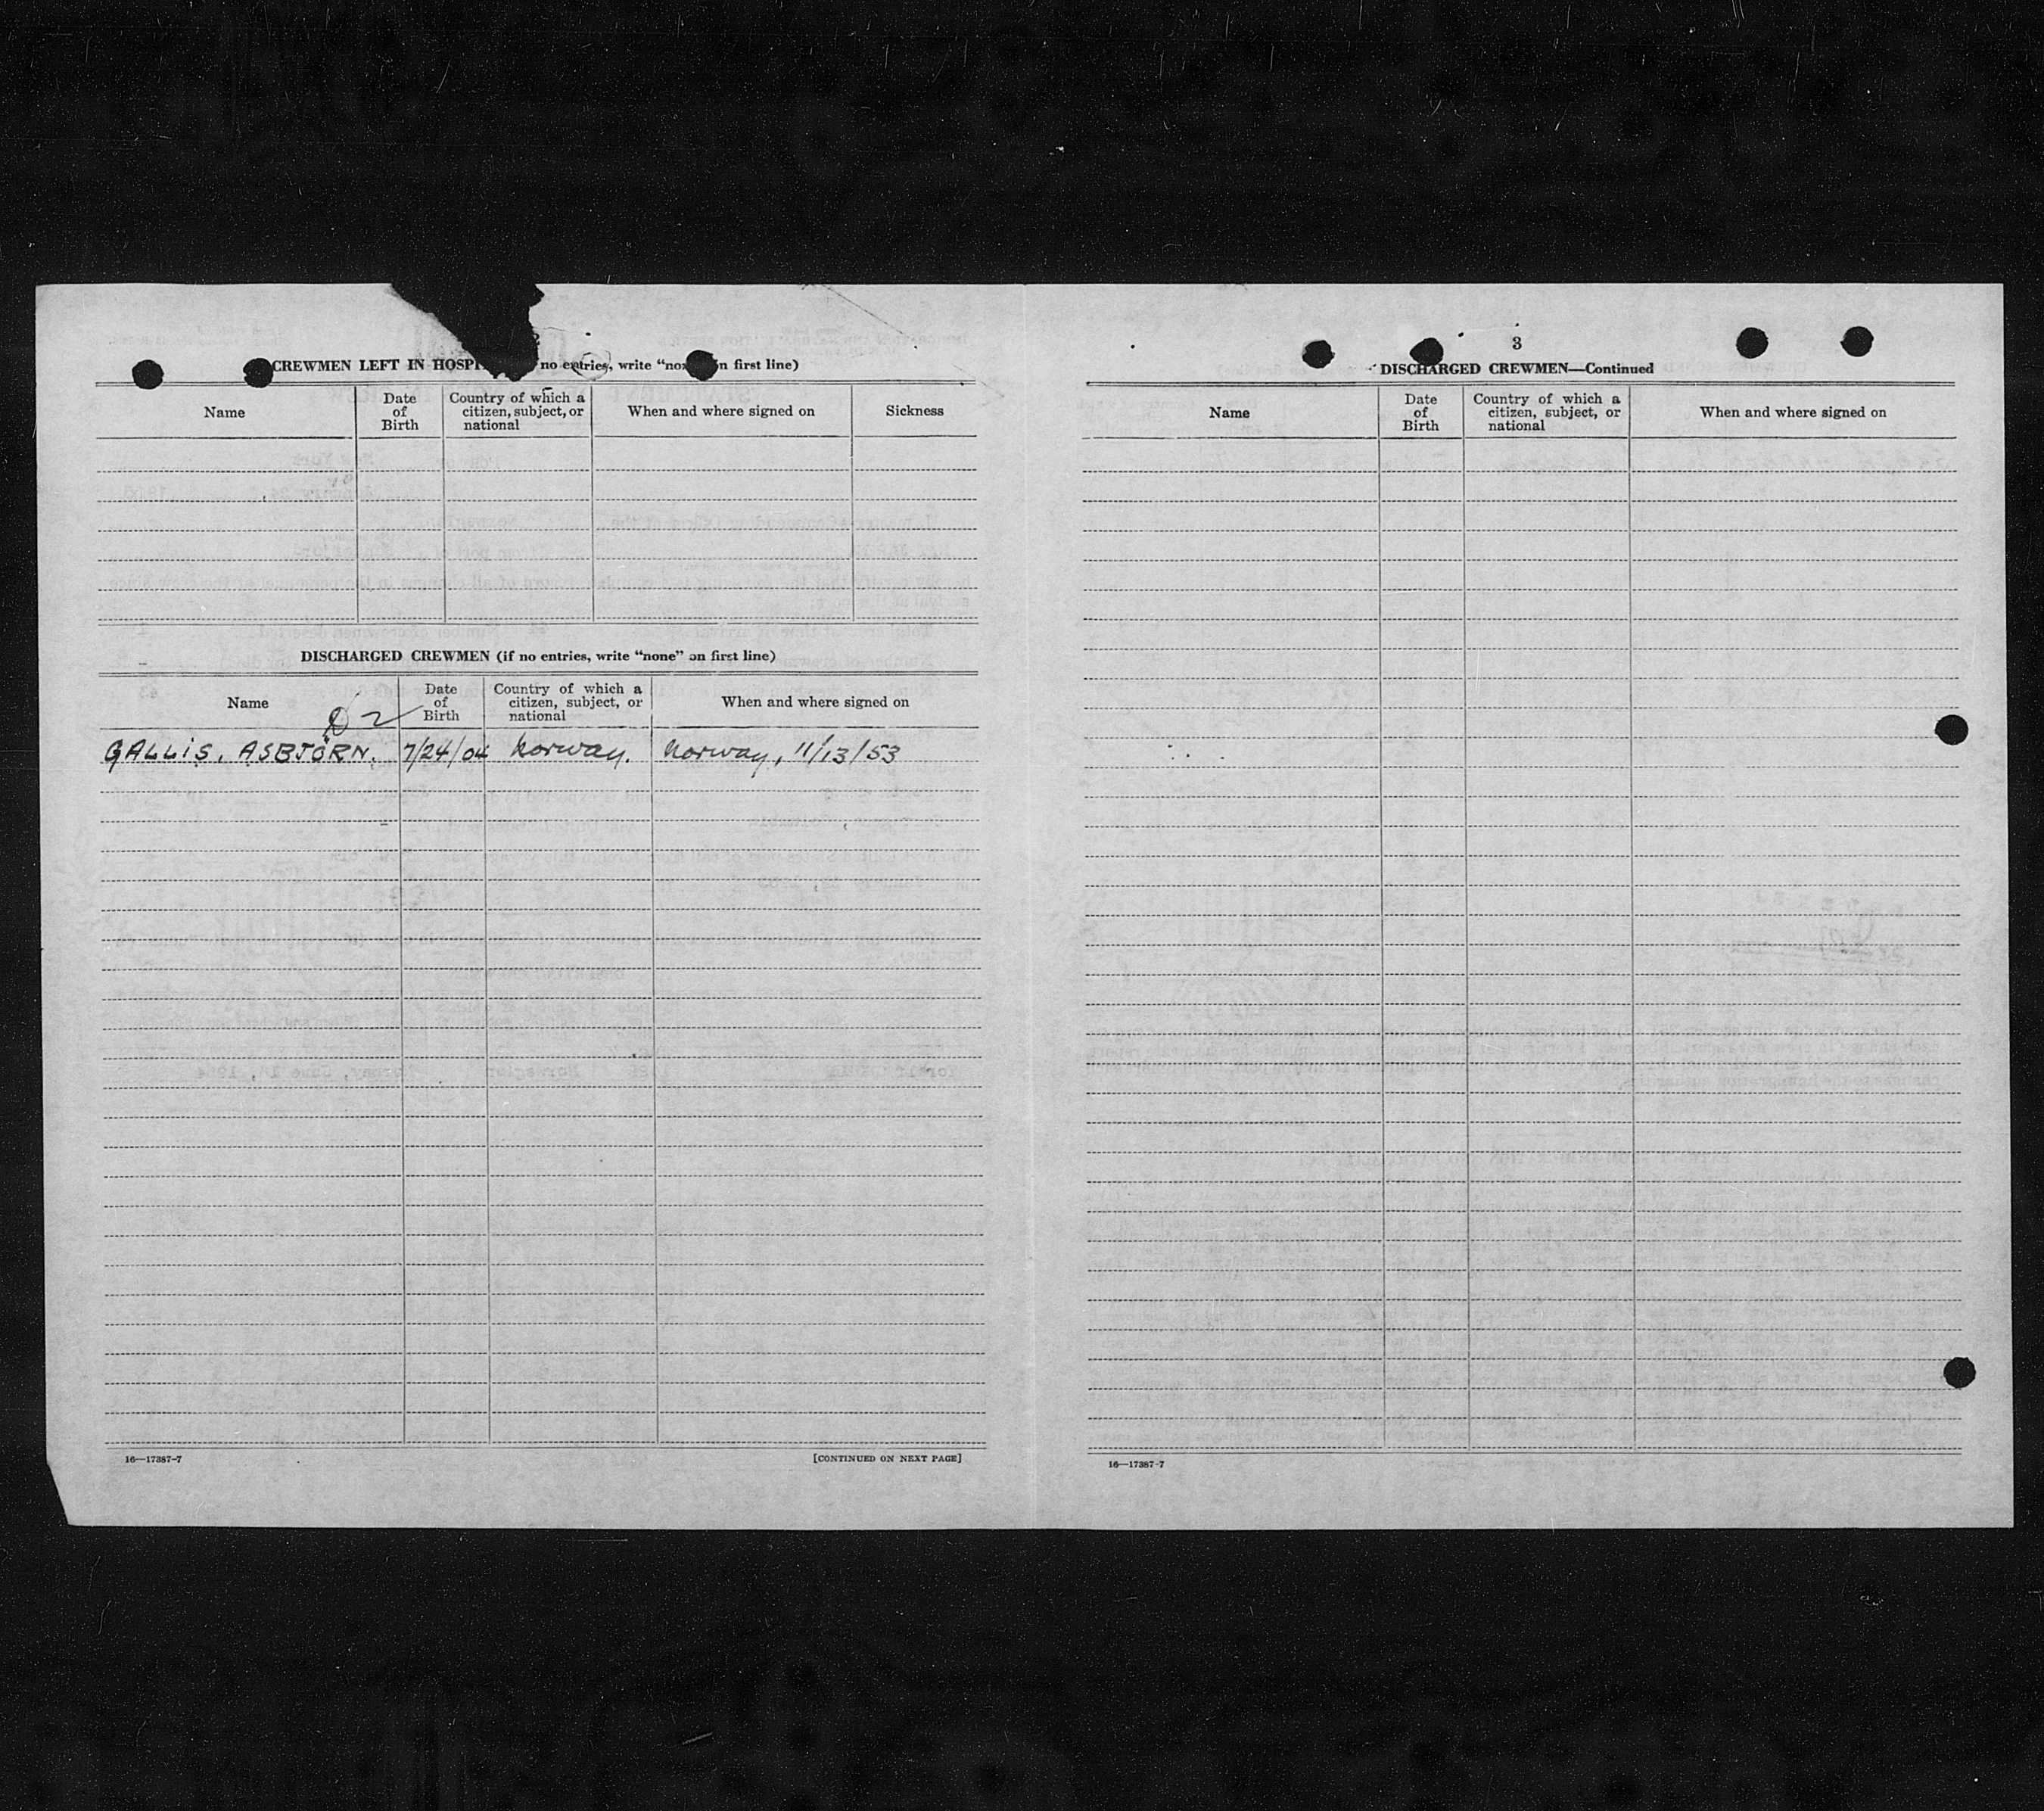 2
CREWMEN LEFT IN HOSPI no entries, write "non n first line)
Name
Date of Birth
Country of which a citizen, subject, or national
When and where signed on
Sickness
DISCHARGED CREWMEN (if no entries, write "none" on first line)
Name
Date of Birth
Country of which a citizen, subject, or national
When and where signed on
GALLIS, ASBJÖRN. 7/24/04 Norway. Norway, 11/13/53
16—17387-7
[CONTINUED ON NEXT PAGE]
3
DISCHARGED CREWMEN—Continued
Name
Date of Birth
Country of which a citizen, subject, or national
When and where signed on
16—17387-7